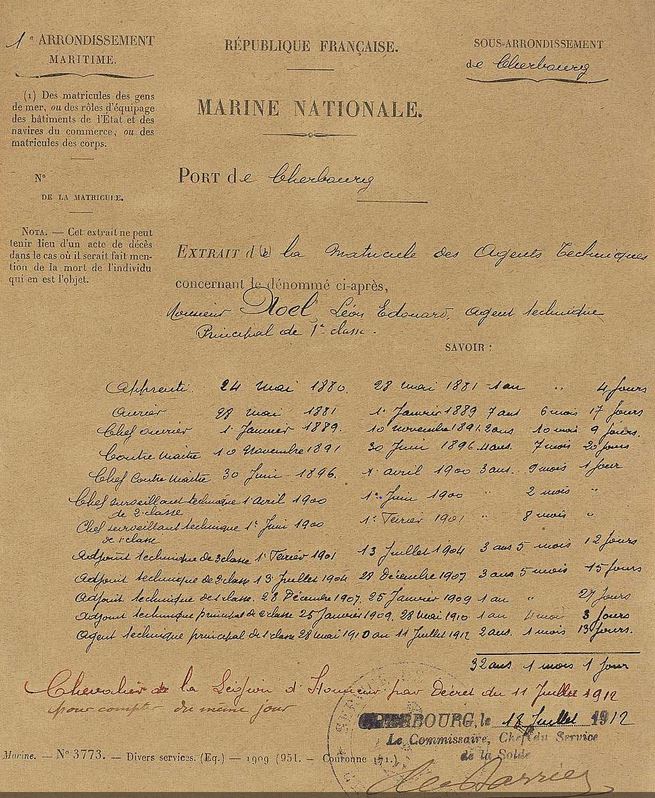 1er ARRONDISSEMENT
MARITIME.
RÉPUBLIQUE FRANÇAISE.
SOUS-ARRONDISSEMENT
de Cherbourg
(1) Des matricules des gens
de mer, ou des rôles d'équipage
des bâtiments de l'État et des
navires du commerce, ou des
matricules des corps.
MARINE NATIONALE.
N°
DE LA MATRICULE.
PORT de Cherbourg
NOTA. — Cet extrait ne peut
tenir lieu d'un acte de décès
dans le cas où il serait fait men-
tion de la mort de l'individu
qui en est l'objet.
EXTRAIT d(1)e la Matricule des Agents Techniques
concernant le dénommé ci-après,
Monsieur Noel, Léon Edouard, agent technique
Principal de 1re classe.
SAVOIR :
Apprenti 24 mai 1880. 28 mai 1881 1 an " 4 jours
Ouvrier 28 mai 1881 1er Janvier 1889 7 ans 6 mois 17 jours
Chef ouvrier 1er Janvier 1889. 10 novembre 1891. 2 ans 10 mois 9 jours.
Contre Maitre 10 Novembre 1891 30 Juin 1896 4 ans. 7 mois 20 jours
Chef Contre Maitre 30 Juin 1896. 1er avril 1900 3 ans. 9 mois 1 jour
Chef surveillant technique 1er avril 1900 1er Juin 1900 " 2 mois "
de 2e classe
Chef surveillant technique 1er Juin 1900 1er Février 1901 " 8 mois "
de 1e classe
Adjoint technique de 3e classe 1er Février 1901 13 Juillet 1904 3 ans 5 mois 12 jours
Adjoint technique de 2e classe 13 Juillet 1904 28 Décembre 1907 3 ans 5 mois 15 jours
Adjoint technique de 1e classe. 28 Décembre 1907. 25 Janvier 1909 1 an " 27 jours
Adjoint technique principal de classe 25 Janvier 1909. 28 mai 1910 1 an 4 mois 3 jours
Agent technique principal de 1e classe 28 mai 1910 au 11 Juillet 1912 2 ans. 1 mois 13 jours.
32 ans 1 mois 1 jour
Chevalier de la Légion d'Honneur par Decret du 11 Juillet 1912
pour compter du même jour
CHERBOURG, le 18 Juillet 1912
Le Commissaire, Chef du Service
de la Solde
Marine. — N° 3773. — Divers services. (Eq.) — 1909 (951. — Couronne 171.)